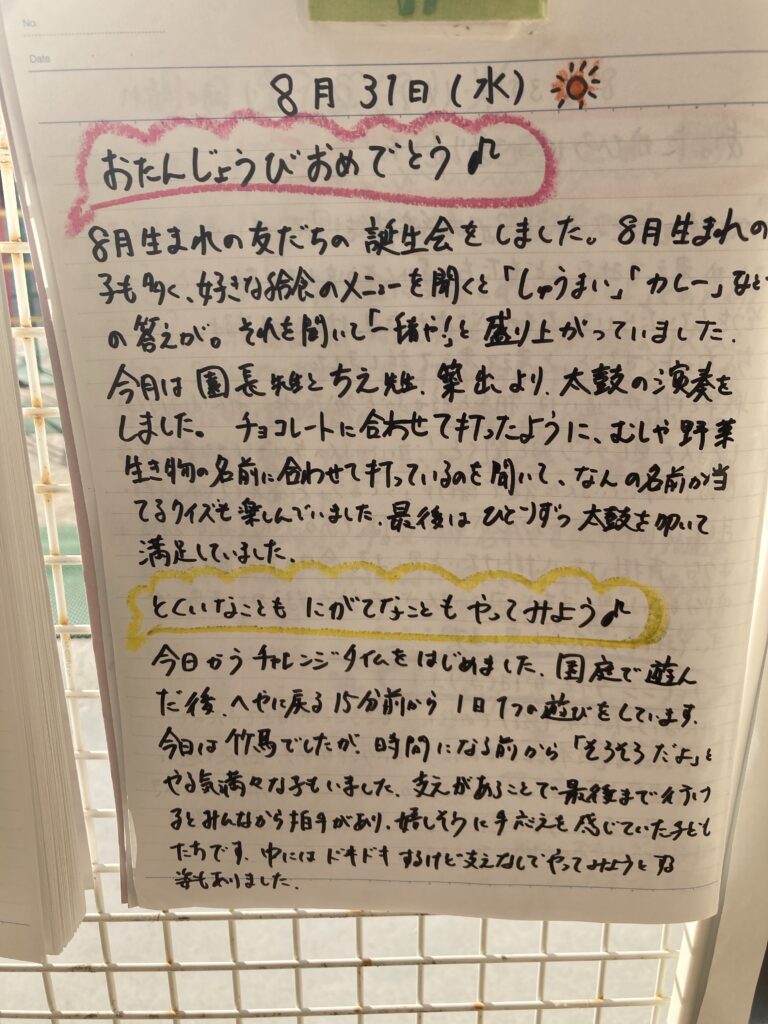 No.
Date
8月31日(水)
おたんじょうびおめでとう♪
8月生まれの友だちの誕生会をしました。8月生まれの
子も多く、好きな給食のメニューを聞くと「しゅうまい」「カレー」など
の答えが。それを聞いて「一緒や!」と盛り上がっていました。
今月は園長先生とちえ先生、築出より、太鼓の演奏を
しました。チョコレートに合わせて打ったように、むしや野菜
生き物の名前に合わせて打っているのを聞いて、なんの名前か当
てるクイズも楽しんでいました。最後はひとりずつ太鼓を叩いて
満足していました。
とくいなことも にがてなことも やってみよう♪
今日からチャレンジタイムをはじめました。園庭で遊ん
だ後、へやに戻る15分前から1日1つの遊びをしています。
今日は竹馬でしたが、時間になる前から「そろそろだよ」と
やる気満々な子もいました。支えがあることで最後まで
るとみんなから拍手があり、嬉しそうに手応えを感じていた子ども
たちです。中にはドキドキするけど支えなしでやってみようとする
姿もありました。